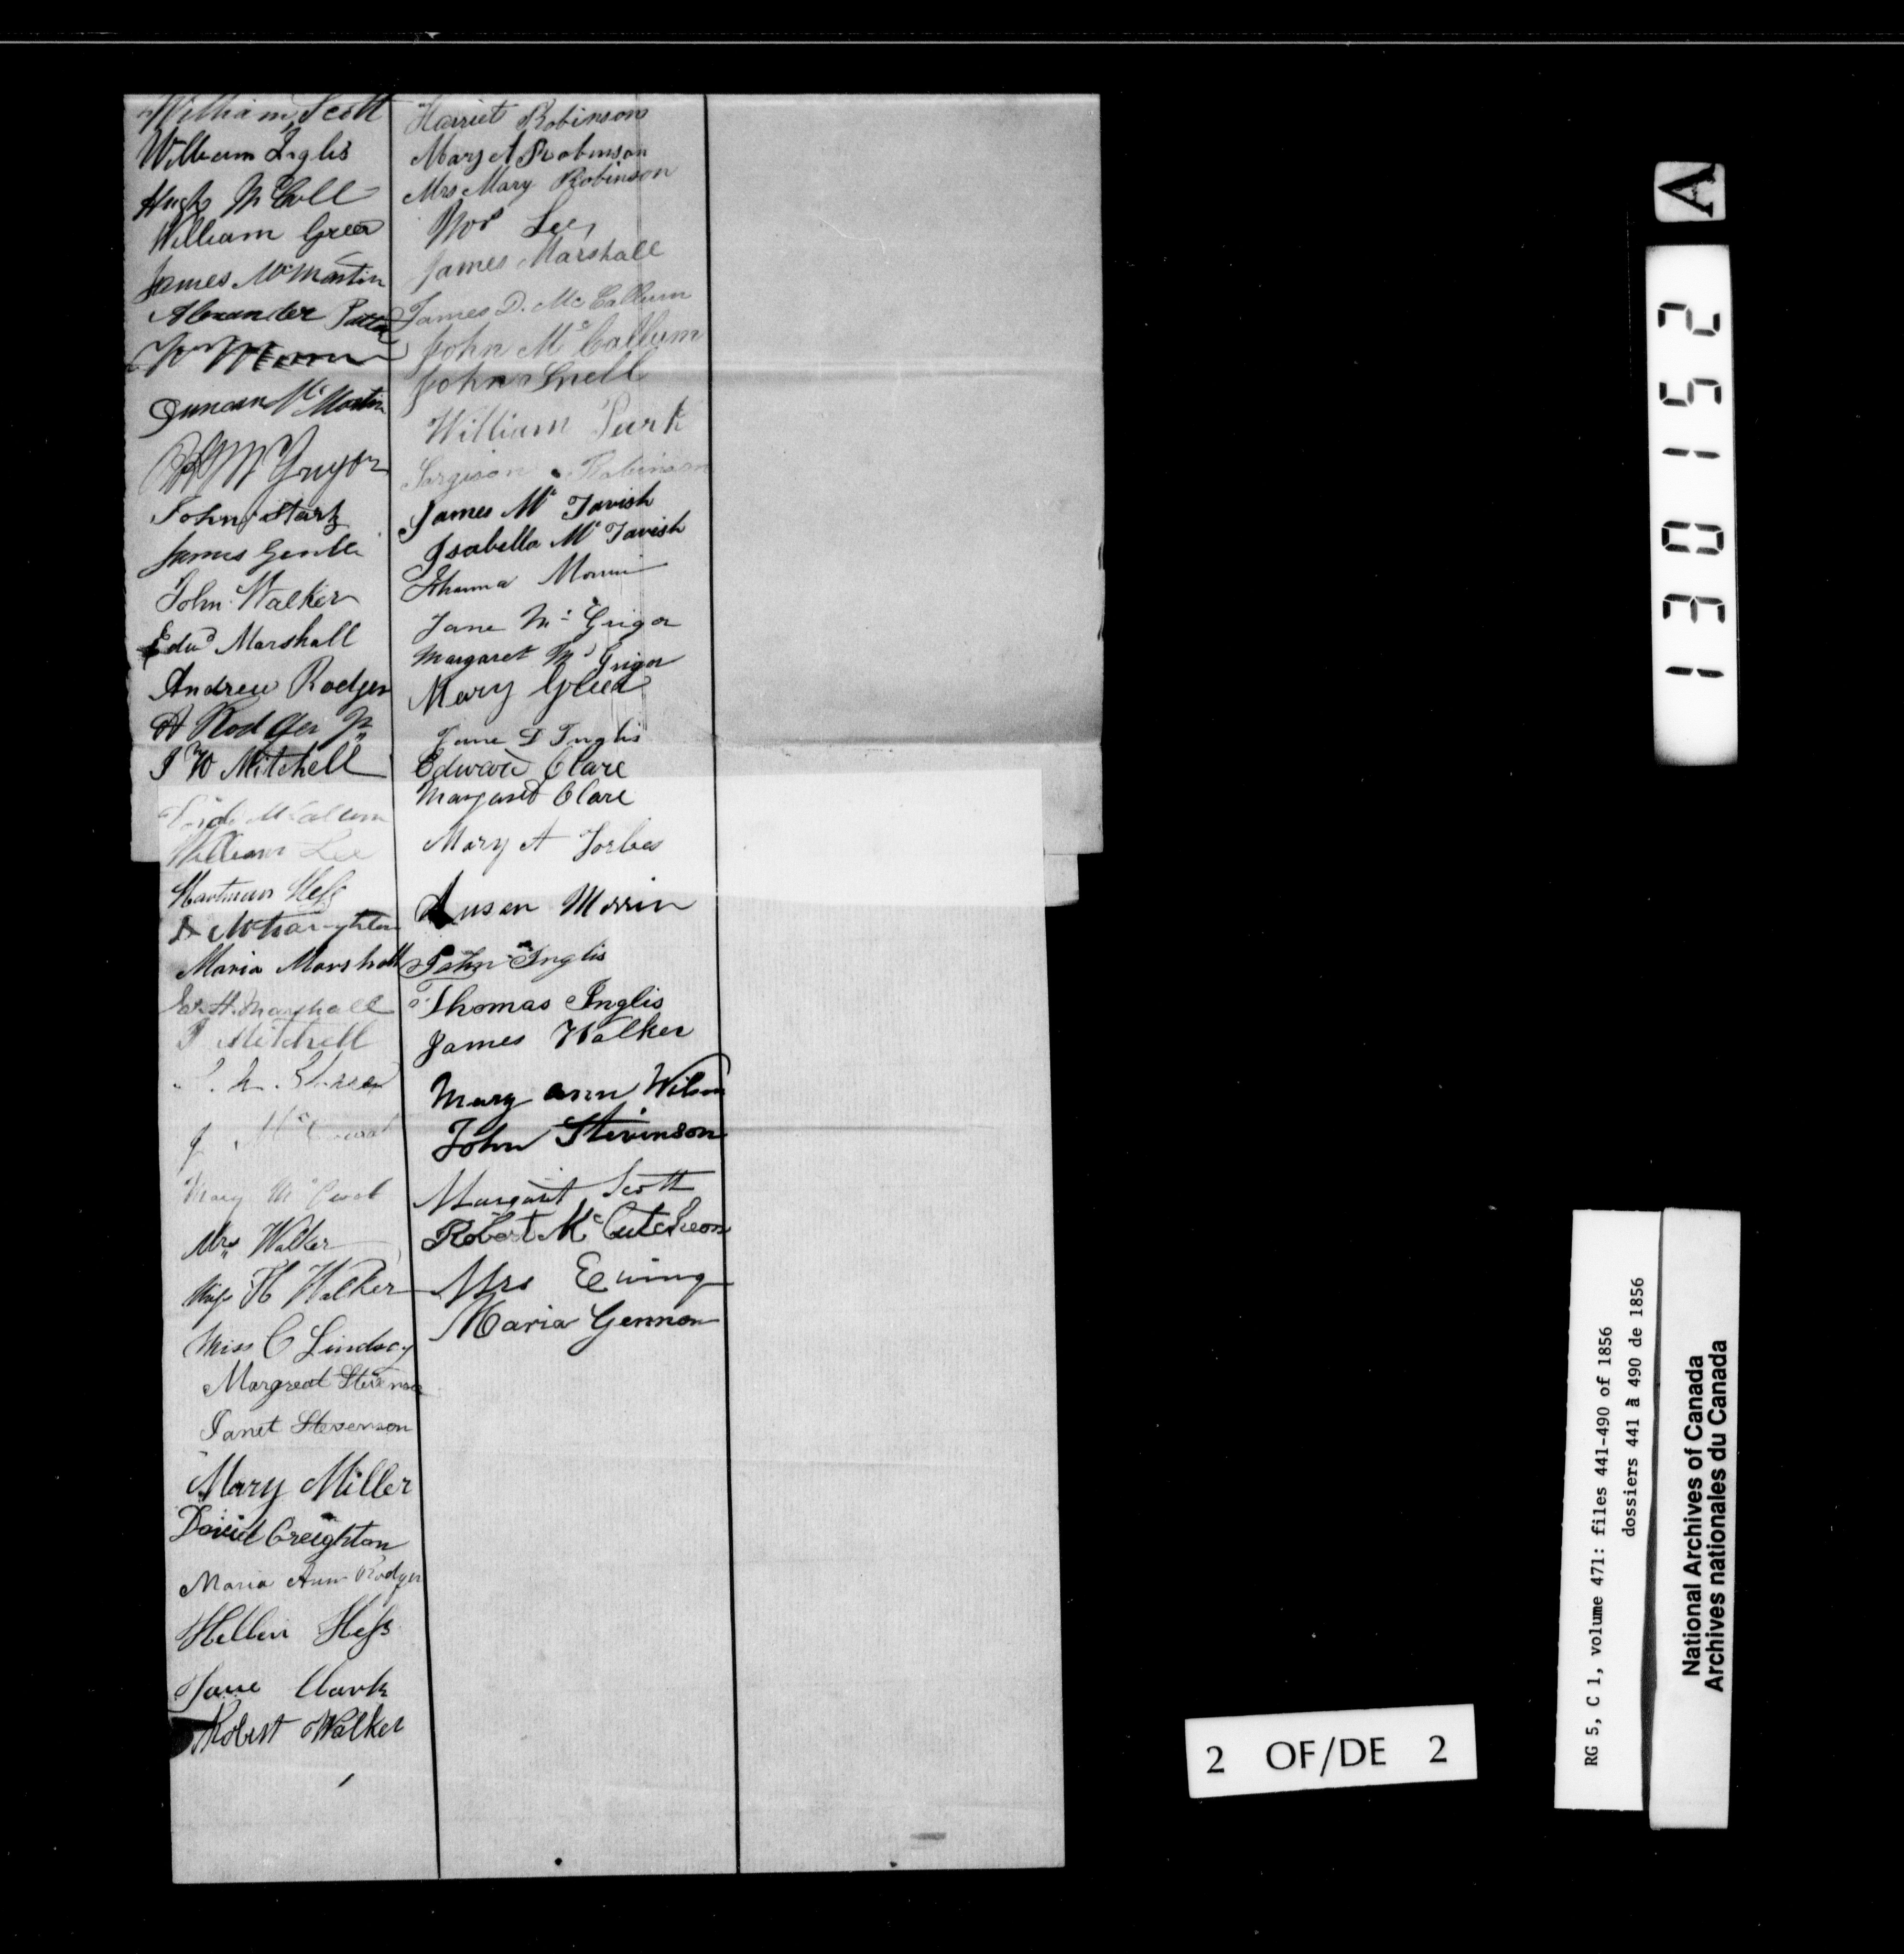 William Scott
William Inglis
Hugh McColl
William Greer
James McMartin
Alexander
Duncan McMartin
McGregor
John Stark
James Gentle
John Walker
Edwd Marshall
Andrew Rodger
A Rodger Jr
J W Mitchell
McCallum
William Lee
Hartman Hess
D McNaughton
Maria Marshall
H. Marshall
J Mitchell
J
Mary
Mrs Walker
Miss H Walker
Miss C Lindsay
Margreat Stevenson
Janet Stevenson
Mary Miller
David Creighton
Maria Ann Rodger
Hellen Hess
Jane Clark
Robert Walker
Harriet Robinson
Mary A Robinson
Mrs Mary Robinson
Lee
James Marshall
James D. McCallum
John McCallum
John Snell
William Park
Robinson
James McTavish
Isabella McTavish
Jane McGrigor
Margaret McGrigor
Mary Greer
Jane D Inglis
Edward Clare
Margaret Clare
Mary A Forbes
Susan Morrin
John Inglis
Thomas Inglis
James Walker
Mary ann Wilson
John Stevinson
Margaret Scott
Robert McCutcheon
Mrs Ewing
Maria Gennon
A
130152
2 OF/DE 2
RG 5, C 1, volume 471: files 441-490 of 1856
dossiers 441 à 490 de 1856
National Archives of Canada
Archives nationales du Canada